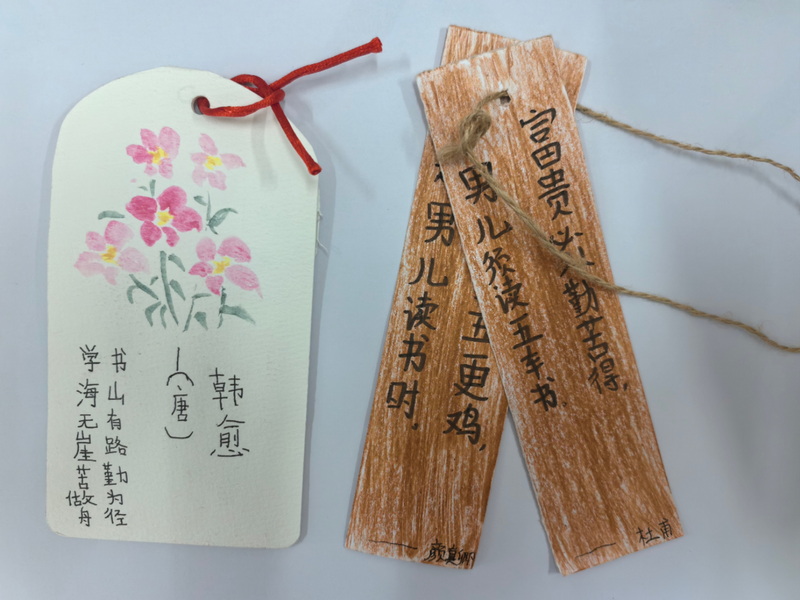 书山有路勤为径
学海无崖苦做舟
—(唐)
韩愈
五更鸡,
男儿读书时.
—颜真卿
富贵必从勤苦得,
男儿须读五车书.
—杜甫